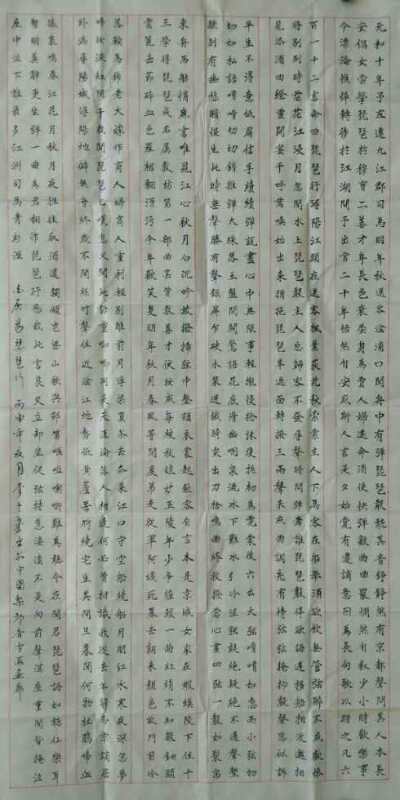 元和十年予左遷九江郡司馬明年秋送客湓浦口聞舟中夜彈琵琶者聽其音錚錚然有京都聲問其人本長
安倡女嘗學琵琶於穆曹二善才年長色衰委身為賈人婦遂命酒使快彈數曲曲罷憫然自叙少小時歡樂事
今漂淪憔悴轉徙於江湖間予出官二年恬然自安感斯人言是夕始覺有遷謫意因為長句歌以贈之凡六
百一十二言命曰琵琶行潯陽江頭夜送客楓葉荻花秋索索主人下馬客在船舉酒欲飲無管弦醉不成歡慘
將別別時茫茫江浸月忽聞水上琵琶聲主人忘歸客不發尋聲暗問彈者誰琵琶聲停欲語遲移船相近邀相
見添酒回燈重開宴千呼萬喚始出來猶抱琵琶半遮面轉軸撥弦三兩聲未成曲調先有情弦弦掩抑聲聲思似訴
平生不得志低眉信手續續彈說盡心中無限事輕攏慢撚抹復挑初為霓裳後六幺大弦嘈嘈如急雨小弦切
切如私語嘈嘈切切錯雜彈大珠小珠落玉盤間關鶯語花底滑幽咽泉流水下難水泉冷澀弦凝絕凝絕不通聲暫
歇別有幽愁暗恨生此時無聲勝有聲銀瓶乍破水漿迸鐵騎突出刀槍鳴曲終收撥當心畫四弦一聲如裂帛
東舟西舫悄無言唯見江心秋月白沉吟放撥插弦中整頓衣裳起斂容自言本是京城女家在蝦蟆陵下住十
三學得琵琶成名屬教坊第一部曲罷曾教善才伏妝成每被秋娘妒五陵年少爭纏頭一曲紅綃不知數鈿頭
雲篦擊節碎血色羅裙翻酒污今年歡笑復明年秋月春風等閒度弟走從軍阿姨死暮去朝來顏色故門前冷
落鞍馬稀老大嫁作商人婦商人重利輕別離前月浮梁買茶去去來江口守空船繞船月明江水寒夜深忽夢
啼妝淚紅闌干我聞琵琶已嘆息又聞此語重唧唧同是天涯淪落人相逢何必曾相識我從去年辭帝京謫居
臥病潯陽城潯陽地僻無音樂終歲不聞絲竹聲住近湓江地低濕黃蘆苦竹繞宅生其間旦暮聞何物杜鵑啼血
猿哀鳴春江花朝秋月夜往往取酒還獨傾豈無山歌與村笛嘔啞嘲哳難為聽今夜聞君琵琶語如聽仙樂耳
暫明莫辭更坐彈一曲為君翻作琵琶行感我此言良久立却坐促弦弦轉急淒淒不似向前聲滿座重聞皆掩泣
座中泣下誰最多江州司馬青衫濕 白居易琵琶行 丙申年